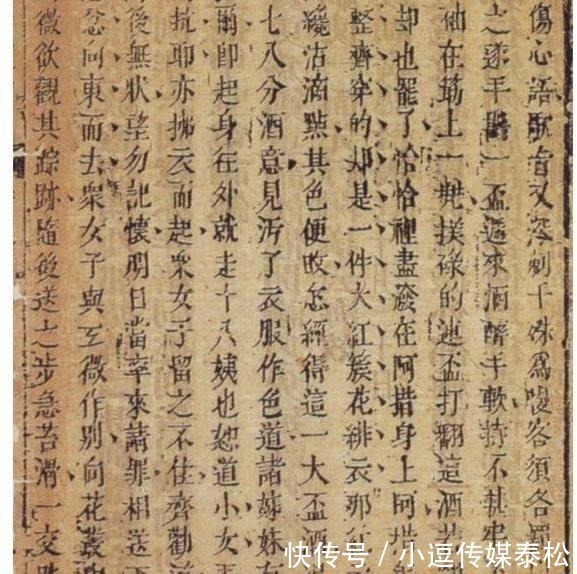 傷心語歌旨又深刺予殊為嫚客須各罰
之遂手斟一盃遞來酒醉手軟持不甚牢
袖在筯上一兠撲碌的連盃打翻這酒
却也罷了恰恰裡盡潑在阿措身上阿措
整齊穿的却是一件大紅簇花緋衣那紅
纔沾滴點其色便改怎經得這一大盃酒
七八分酒意見污了衣服作色道諸姊妹
爾即起身在外就走十八姨也怒道小女
抗耶亦拂衣而起衆女子留之不住齊勸
後無狀望勿記懷明日當率來請罪相送
忿向東而去衆女子與玄微作別向花叢
微欲觀其踪跡隨後送之步急苔滑一交跌
快传号/小逗传媒泰松